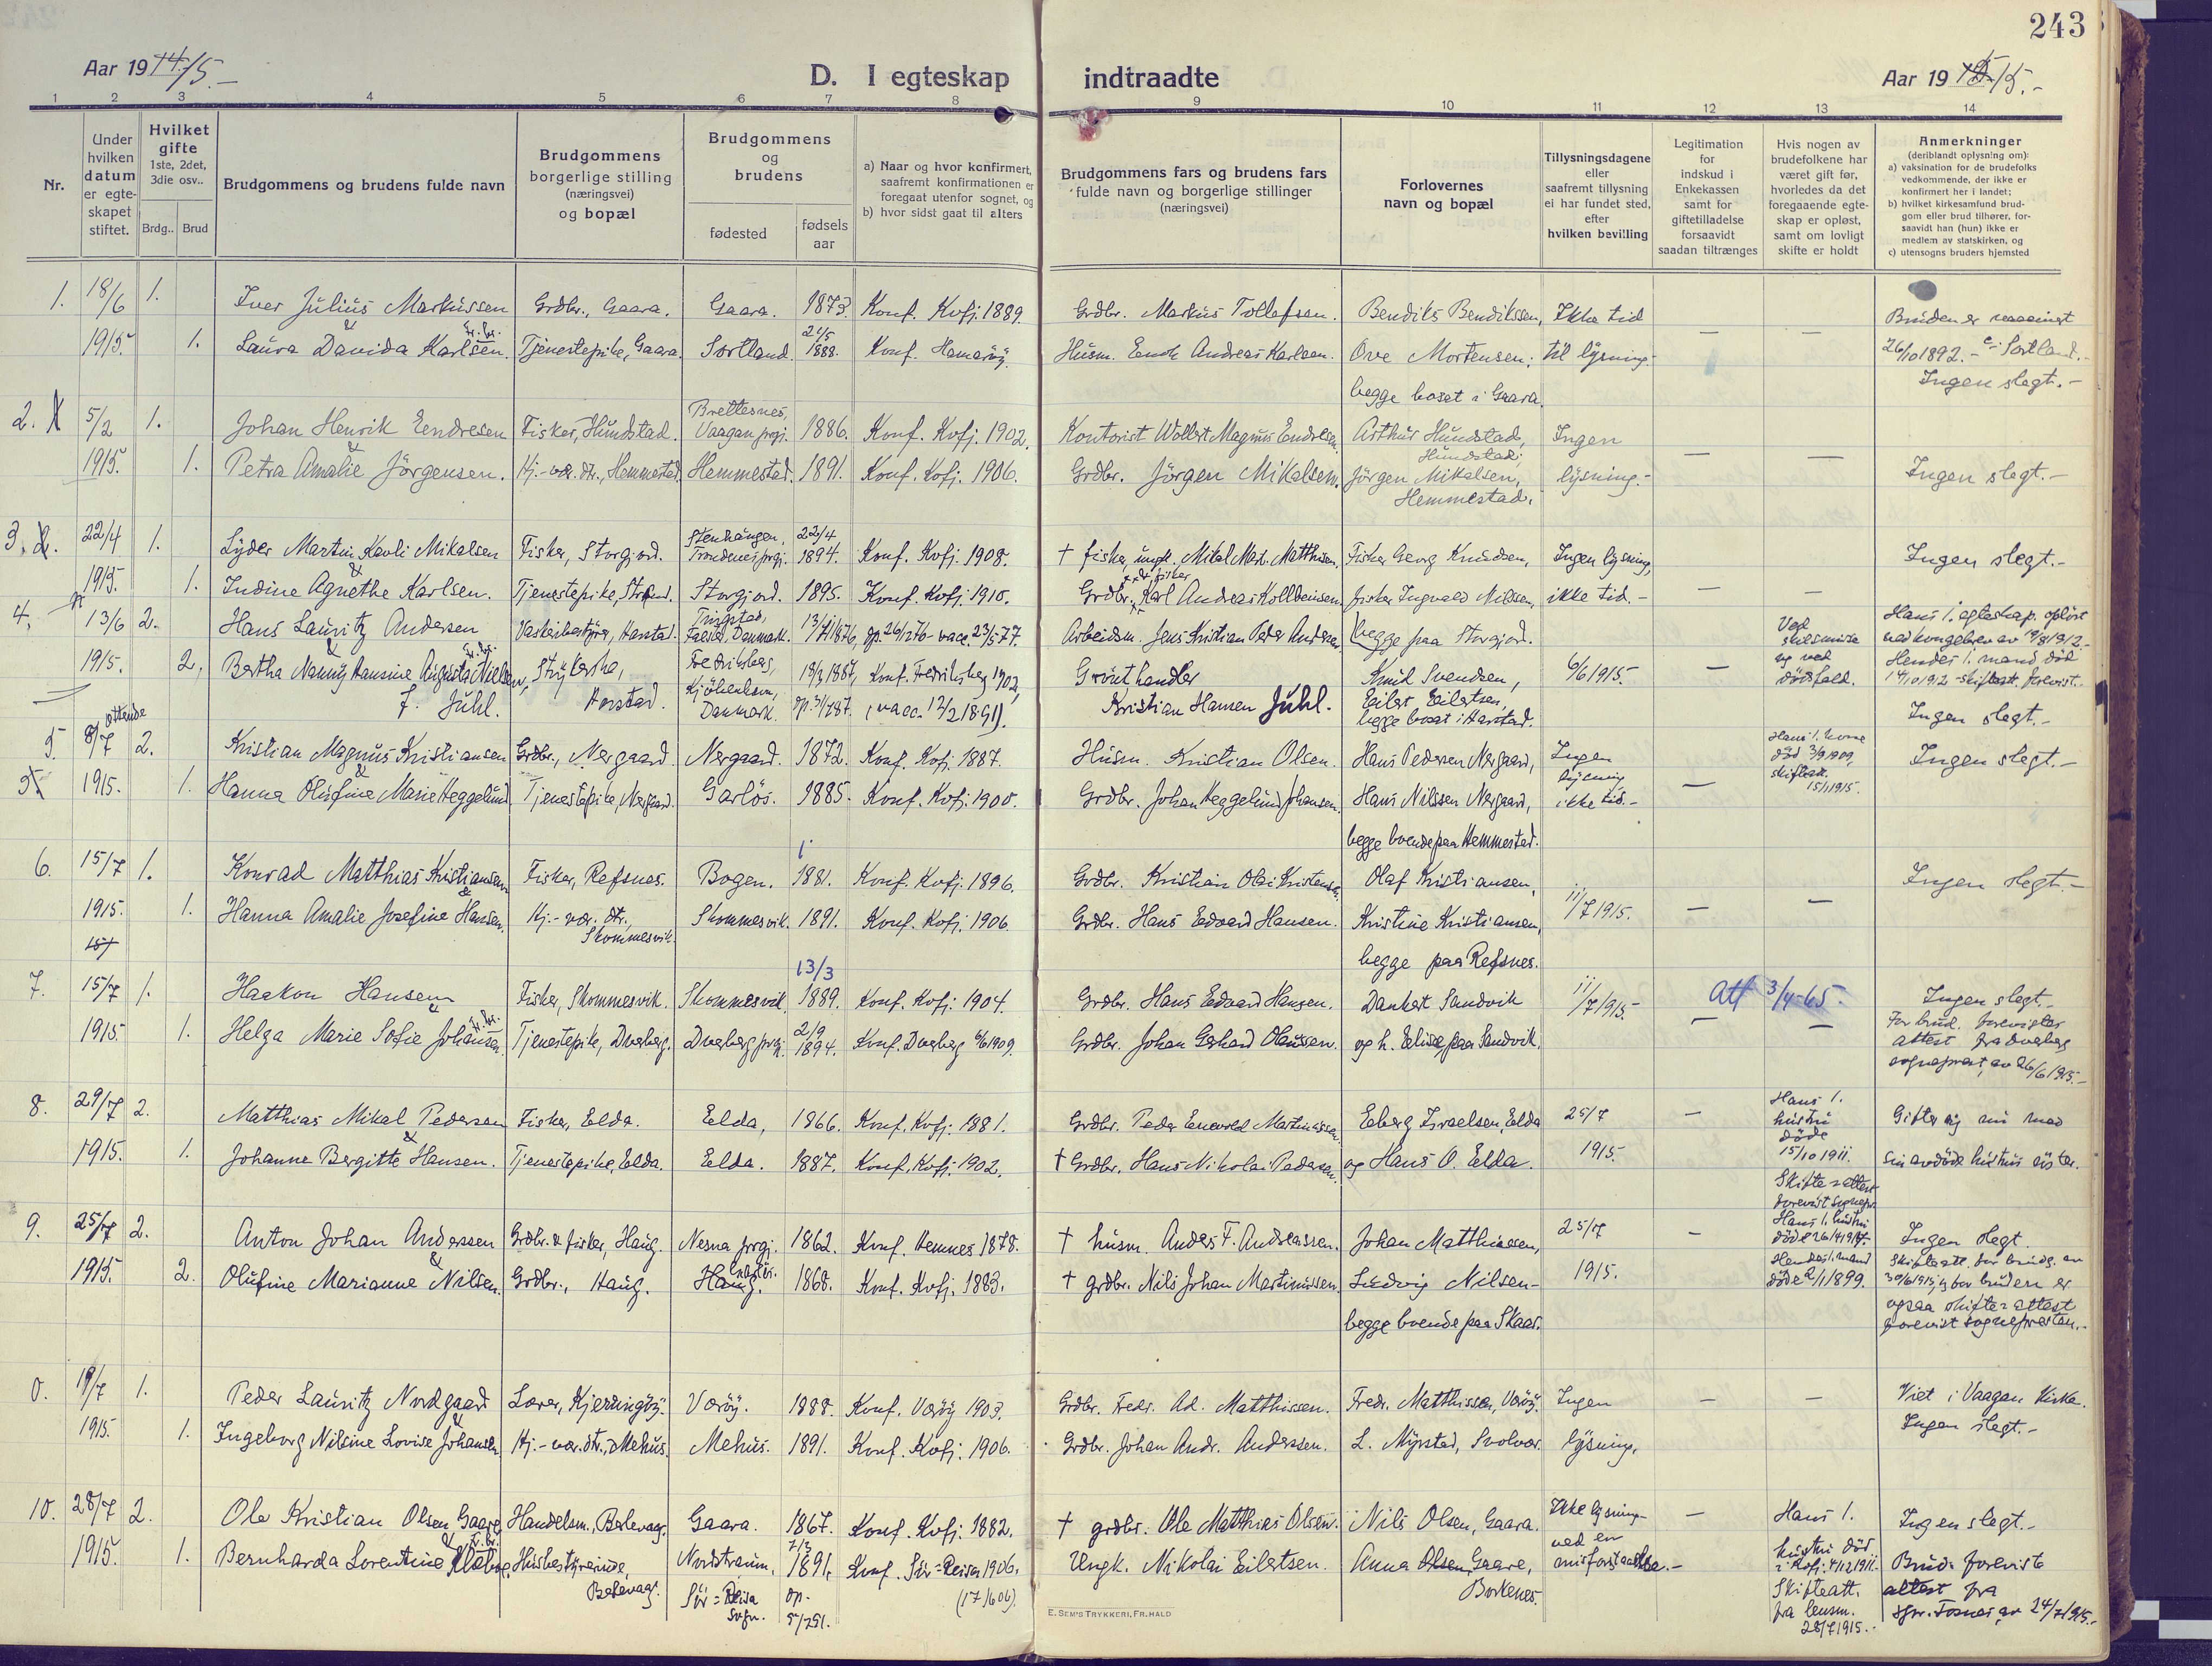 243
Aar 19 14/15.-
D. I egteskap indtraadte
Aar 19 15/15.-
1 2 3 4 5 6 7 8 9 10 11 12 13 14
Nr.
Under hvilken datum er egteskapet stiftet.
Hvilket gifte 1ste, 2det, 3die osv..
Brdg.. Brud
Brudgommens og brudens fulde navn
Brudgommens borgerlige stilling (næringsvei) og bopæl
Brudgommens og brudens
fødested
fødsels aar
a) Naar og hvor konfirmert, saafremt konfirmationen er foregaat utenfor sognet, og
b) hvor sidst gaat til alters
Brudgommens fars og brudens fars fulde navn og borgerlige stillinger (næringsvei)
Forlovernes navn og bopæl
Tillysningsdagene eller saafremt tillysning ei har fundet sted, efter hvilken bevilling
Legitimation for indskud i Enkekassen samt for giftetilladelse forsaavidt saadan tiltrænges
Hvis nogen av brudefolkene har været gift før, hvorledes da det foregaaende egteskap er opløst, samt om lovligt skifte er holdt
Anmerkninger (deriblandt oplysning om):
a) vaksination for de brudefolks vedkommende, der ikke er konfirmert her i landet;
b) hvilket kirkesamfund brudgom eller brud tilhører, forsaavidt han (hun) ikke er medlem av statskirken, og
c) utensogns bruders hjemsted
1. 18/6 1. Iver Julius Markussen Grdbr., Gaara. Gaara. 1873. Konf. Kvfj. 1889. Grdbr. Markus Tollefsen. Bendiks Bendikssen, Ikke tid Bruden er vaccinert
& 21/5
1915. 1. Laura Davida Karlsen. Tjenestepike, Gaara. Sortland. 1888. Konf. Hamarøy. Husm. Andreas Karlsen. Ove Mortensen; til lysning.- — — 26/10 1892. - Sortland.-
begge boset i Gaara. Ingen slegt.-
2. 5/2 1. Johan Henrik Eendresen Fisker, Hundstad. Brettesnes, Vaagan prgj. 1886. Konf. Kvfj. 1902. Kontorist Wollert Magnus Endresen. Arthur Hundstad, Hundstad; Ingen
&
1915. 1. Petra Amalie Jørgensen. Hj.-vær. dtr., Hemmestad. Hemmestad. 1891. Konf. Kvfj. 1906. Grdbr. Jørgen Mikalsen. Jørgen Mikalsen, Hemmestad. lysning.- — — Ingen slegt.-
3. 22/4 1. Lyder Martin Kavli Mikalsen Fisker, Storgjord. Stenhaugen, Trondenes prgj. 22/4 1894. Konf. Kvfj. 1908. † fisker, ungk. Mikal Mart. Matthisen. Fisker Georg Knudsen, Ingen lysning, Ingen slegt.-
&
1915. 1. Indine Agnethe Karlsen. Tjenestepike, Strand. Storgjord. 1895. Konf. Kvfj. 1910. Grdbr. Karl Andreas Kolbeinsen fisker Ingvald Nilssen, ikke tid.- — —
begge paa Storgjord.
4. 13/6 2. Hans Lauritz Andersen Vaskeribestyrer, Harstad. Danmark. Arbeidsm. Jens Kristian Peder Andersen Hans 1. egteskap opløst ved kongebrev av
1915. 2. Bertha Nanny Hansine Augusta Nielsen, f. Juhl. Strykerske, Harstad. Fredriksberg, Kjøbenhavn, Danmark. Konf. Fredriksberg 1902, (vacc. 12/2 1891). Grønthandler Kristian Hansen Juhl. Knud Svendsen, Eilert Eilertsen, begge boset i Harstad. 6/6 1915. — Ved skilsmisse og ved dødsfald. Hendes 1. mand død
Ingen slegt.-
5. ottende 8/7 2. Kristian Magnus Kristiansen Grdbr., Nergaard. Nergaard. 1872. Konf. Kvfj. 1887. Husm. Kristian Olsen. Hans Pedersen Nergaard, Ingen Hans 1. kone død 3/9 1909, Ingen slegt.-
&
1915. 1. Hanna Olufine Marie Heggelund Tjenestepike, Nergaard. Garløs. 1885. Konf. Kvfj. 1900. Grdbr. Johan Heggelund Johansen. Hans Nilssen Nergaard, lysning ikke tid.- — skifteatt. 15/1 1915.
begge boende paa Hemmestad.
6. 15/7 1. Konrad Matthias Kristiansen Fisker, Refsnes. Bogen. 1881. Konf. Kvfj. 1896. Grdbr. Kristian Olai Kristensen. Olaf Kristiansen, Ingen slegt.-
&
1915. 1. Hanna Amalie Josefine Hansen. Hj.-vær. dtr., Skommesvik. Skommesvik. 1891. Konf. Kvfj. 1906. Grdbr. Hans Edvard Hansen. Kristine Kristiansen, 11/7 1915. — —
begge paa Refsnes.
7. 15/7 1. Haakon Hansen Fisker, Skommesvik. Skommesvik. 13/3 1889. Konf. Kvfj. 1904. Grdbr. Hans Edvard Hansen. Dankert Sandvik 11/7 1915- Att 3/4-65. Ingen slegt.-
&
1915. 1. Helga Marie Sofie Johansen. Tjenestepike, Dverberg. Dverberg prgj. 2/9 1894. Konf. Dverberg 1909. Grdbr. Johan Gerhard Olaussen. og h. Elise, paa Sandvik. — — For brud. forevistes attest fra Dverberg sogneprest, av 26/6 1915.-
8. 29/7 2. Matthias Mikal Pedersen Fisker, Elda. Elda, 1866. Konf. Kvfj. 1881. Grdbr. Peder Enevold Martinussen. Edberg Israelsen, Elda 25/7 — Hans 1. hustru døde 15/10 1911. Gifter sig nu med
&
1915. 1. Johanne Bergitte Hansen. Tjenestepike, Elda. Elda. 1887. Konf. Kvfj. 1902. † Grdbr. Hans Nikolai Pedersen. og Hans O. Elda. 1915. sin avdøde hustrus søster.
Skifteattest forevist sognepr.
9. 25/7 2. Anton Johan Anderssen Grdbr. & fisker, Haug. Nesna prgj. 1862. Konf. Hemnes 1878. † husm. Anders F. Andreassen. Johan Matthiassen, 25/7 — Hans 1. hustru døde 26/4 1914. Ingen slegt.
&
1915. 2. Olufine Marianne Nilsen. Grdbr., Haug. Haug. 1868. Konf. Kvfj. 1883. † grdbr. Nils Johan Martinussen. Ludvig Nilsen- 1915. Hendes 1. mand døde 2/1 1899. Skifteatt. for brudg. av 30/6 1915, og for bruden er ogsaa skifteattest forevist sognepresten.-
begge boende paa Skaar.
0. 19/7 1. Peder Lauritz Nordgaard Lærer, Kjerringøy. Værøy. 1888. Konf. Værøy 1903. Grdbr. Fredr. Ad. Matthissen. Fredr. Matthissen, Værøy. Ingen — — Viet i Vaagan kirke.
&
1915. 1. Ingeborg Nilsine Lovise Johansen. Hj.-vær. dtr., Mehus. Mehus. 1891. Konf. Kvfj. 1906. Grdbr. Johan Andr. Anderssen. L. Myrstad, Svolvær. lysning. Ingen slegt.-
10. 28/7 2. Ole Kristian Olsen Gaare Handelsm., Berlevag. Gaara. 1867. Konf. Kvfj. 1882. † grdbr. Ole Matthias Olsen. Nils Olsen, Gaara. Ikke lysning — Hans 1. Ingen slegt.-
&
1915. 1. Bernharda Lorentine Husbestyrerinde, Berlevag. Nordstraum, Sør=Reisa sogn. 1891, Konf. Sør=Reisa 1906. (17/6 06). Ungk. Nikolai Eilertsen. Anna Olsen Gaare, Borkenes. ved en misforstaaelse.- hustru død i Kvfj. 4/12 1911. Skifteatt. fra lensm. 28/7 1915.- Brud: foreviste attest fra spr. Fosnes av 24/7 1915.-
E. SEM'S TRYKKERI, FR.HALD